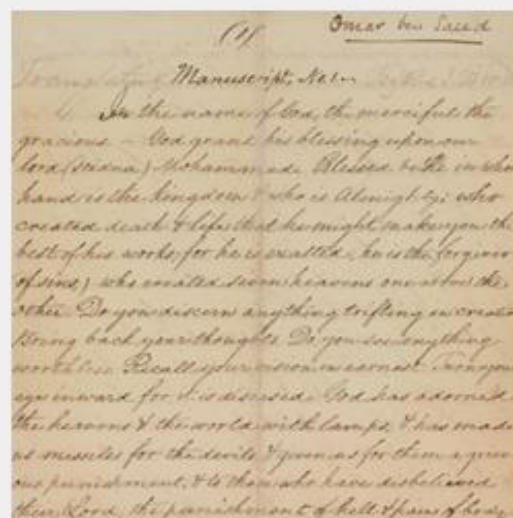 Omar ben Saeed
(1)
Manuscript, No 1.
In the name of God, the merciful the
gracious – God grant his blessing upon our
lord (Seidna) Mohammed. Blessed be He in whose
hand is the kingdom & who is Almighty; who
created death & life that he might make you the
best of his works; for he is exalted, he is the forgiver
(of sins,) who created seven heavens one above the
other. Do you discern anything trifling in creation
Bring back your thoughts. Do you see anything
Recall your vision in earnest. Turn your
eye inward for it is diseased. God has adorned
the heavens & the world with lamps, & has made
us missiles for the devils & given us for them a griev
ous punishment, & to those who have disbelieved
their Lord, the punishment of hell &